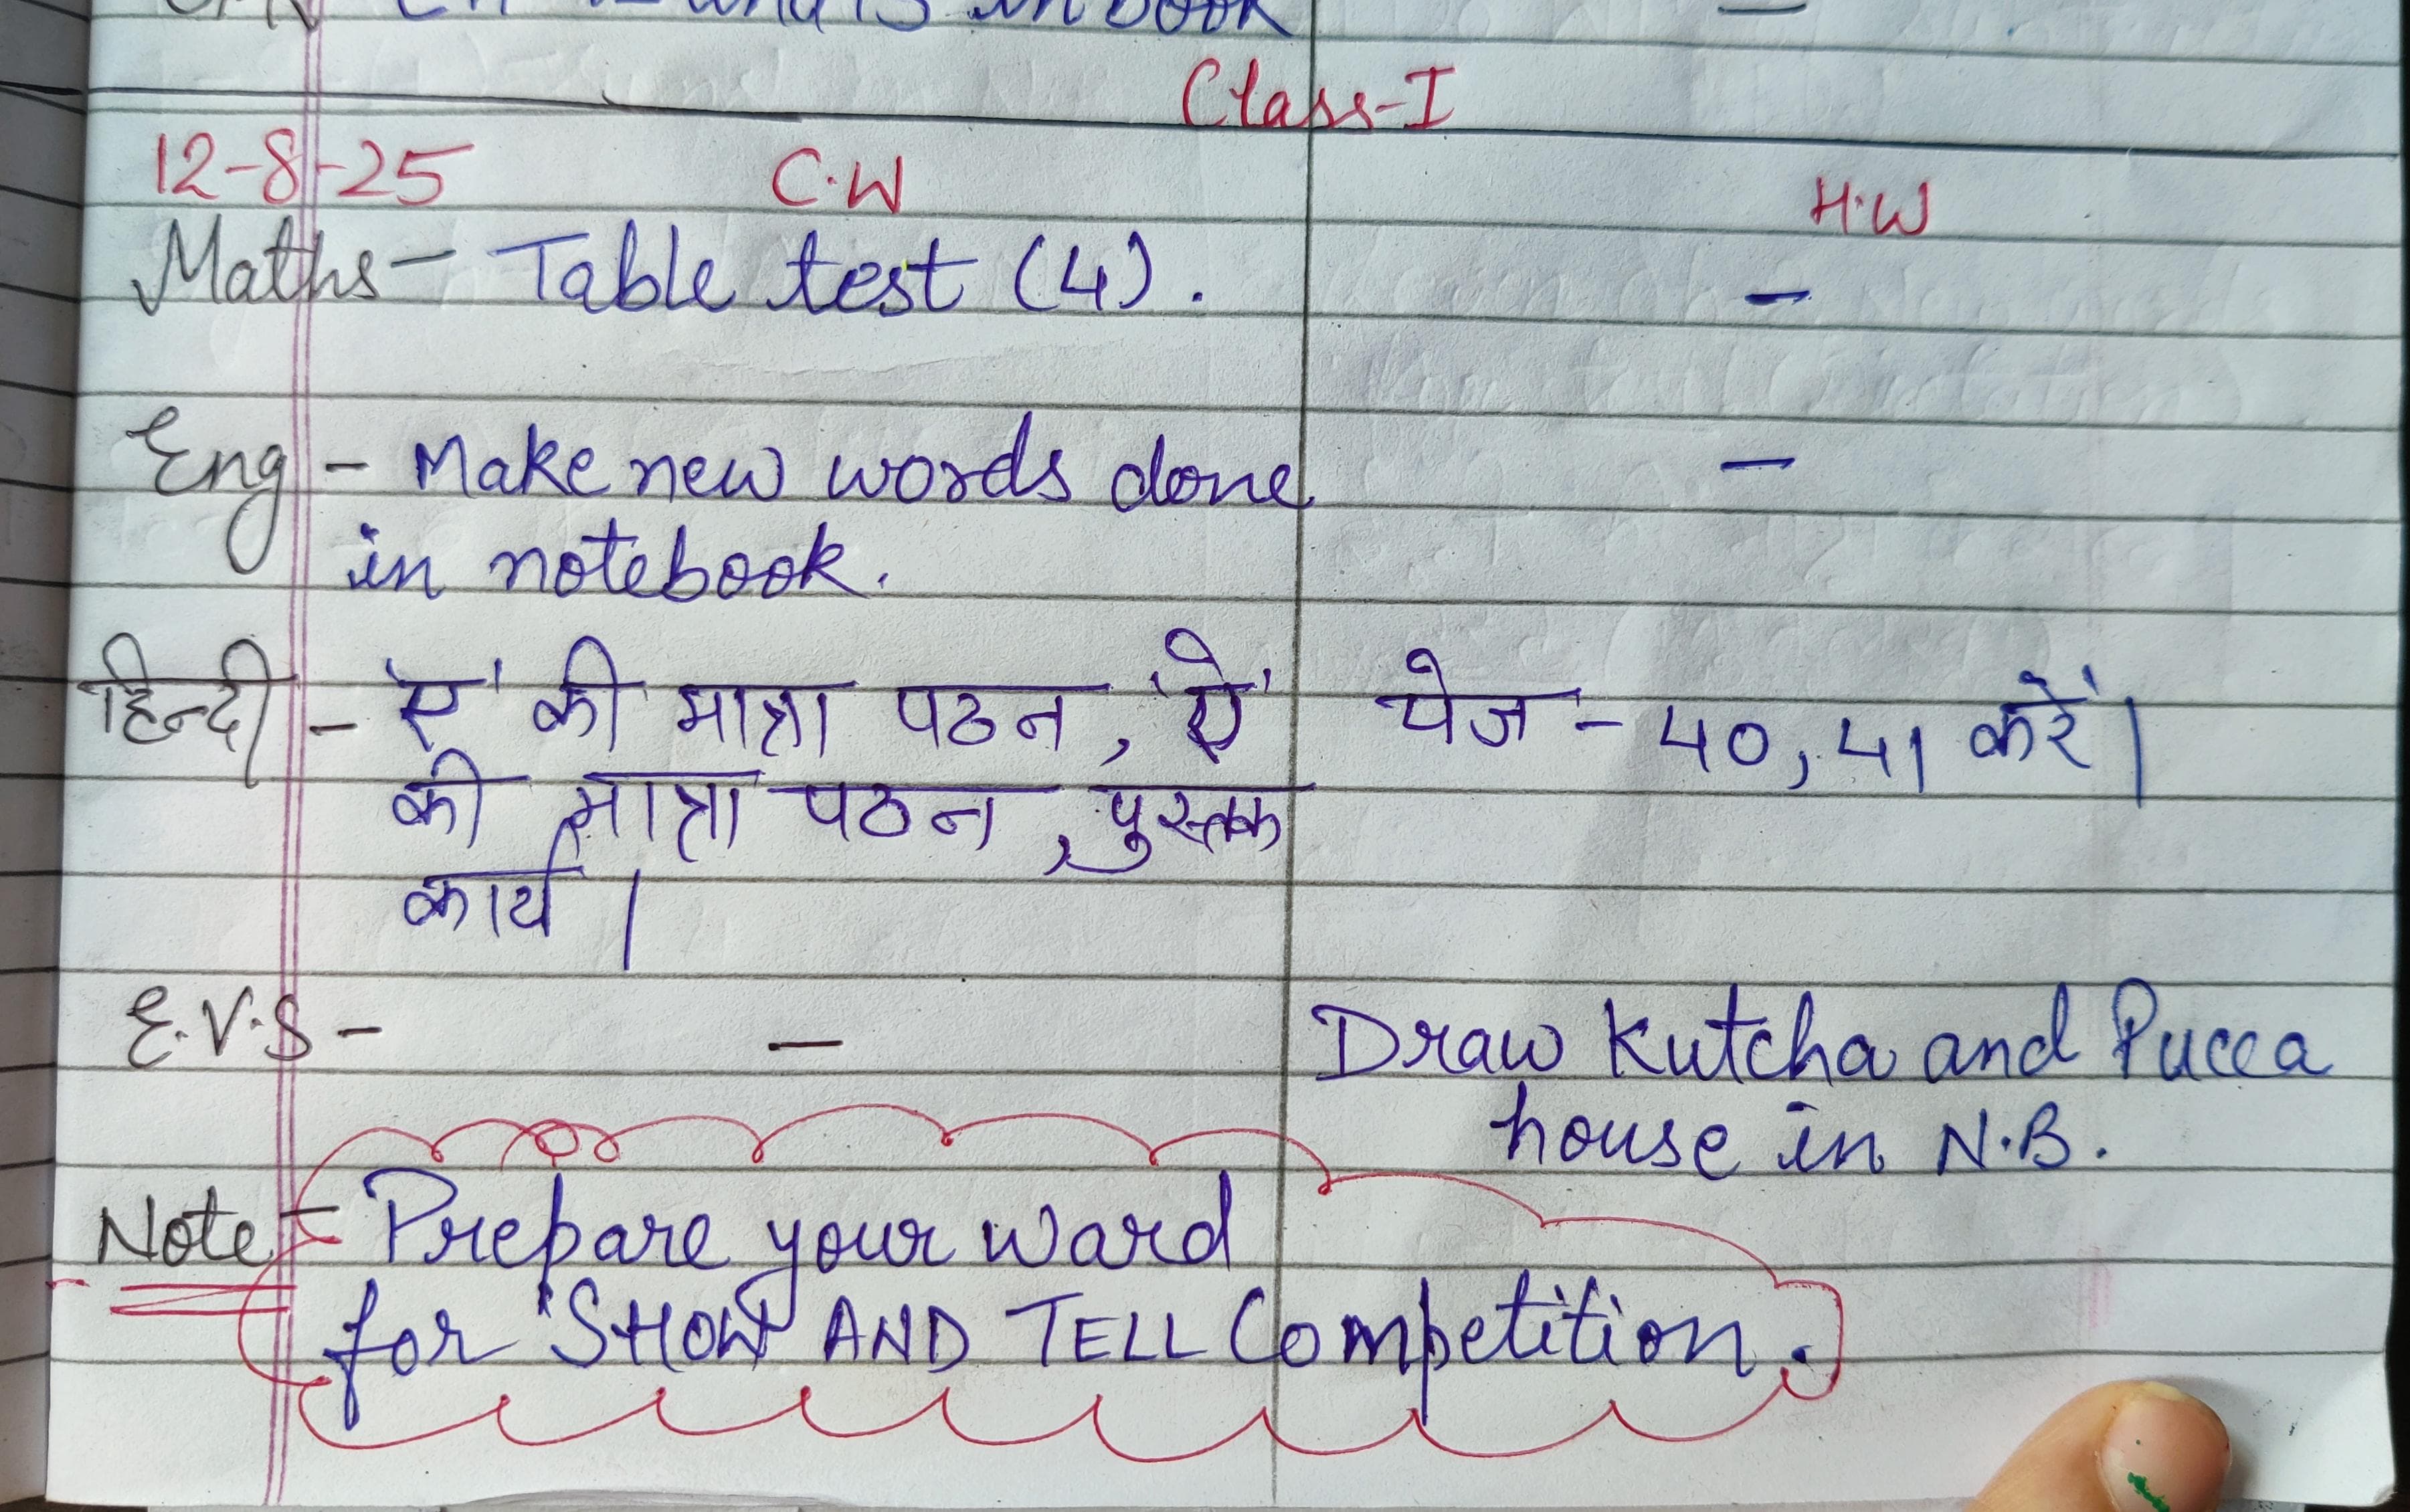 in book
Class-I
12-8-25 C.W H.W
Maths - Table test (4). -
Eng - Make new words done -
in notebook.
हिन्दी - 'ए' की मात्रा पठन, 'ऐ' पेज - 40, 41 करें।
की मात्रा पठन, पुस्तक
कार्य।
E.V.S - - Draw Kutcha and Pucca
house in N.B.
Note - Prepare your ward
for 'SHOW AND TELL Competition.